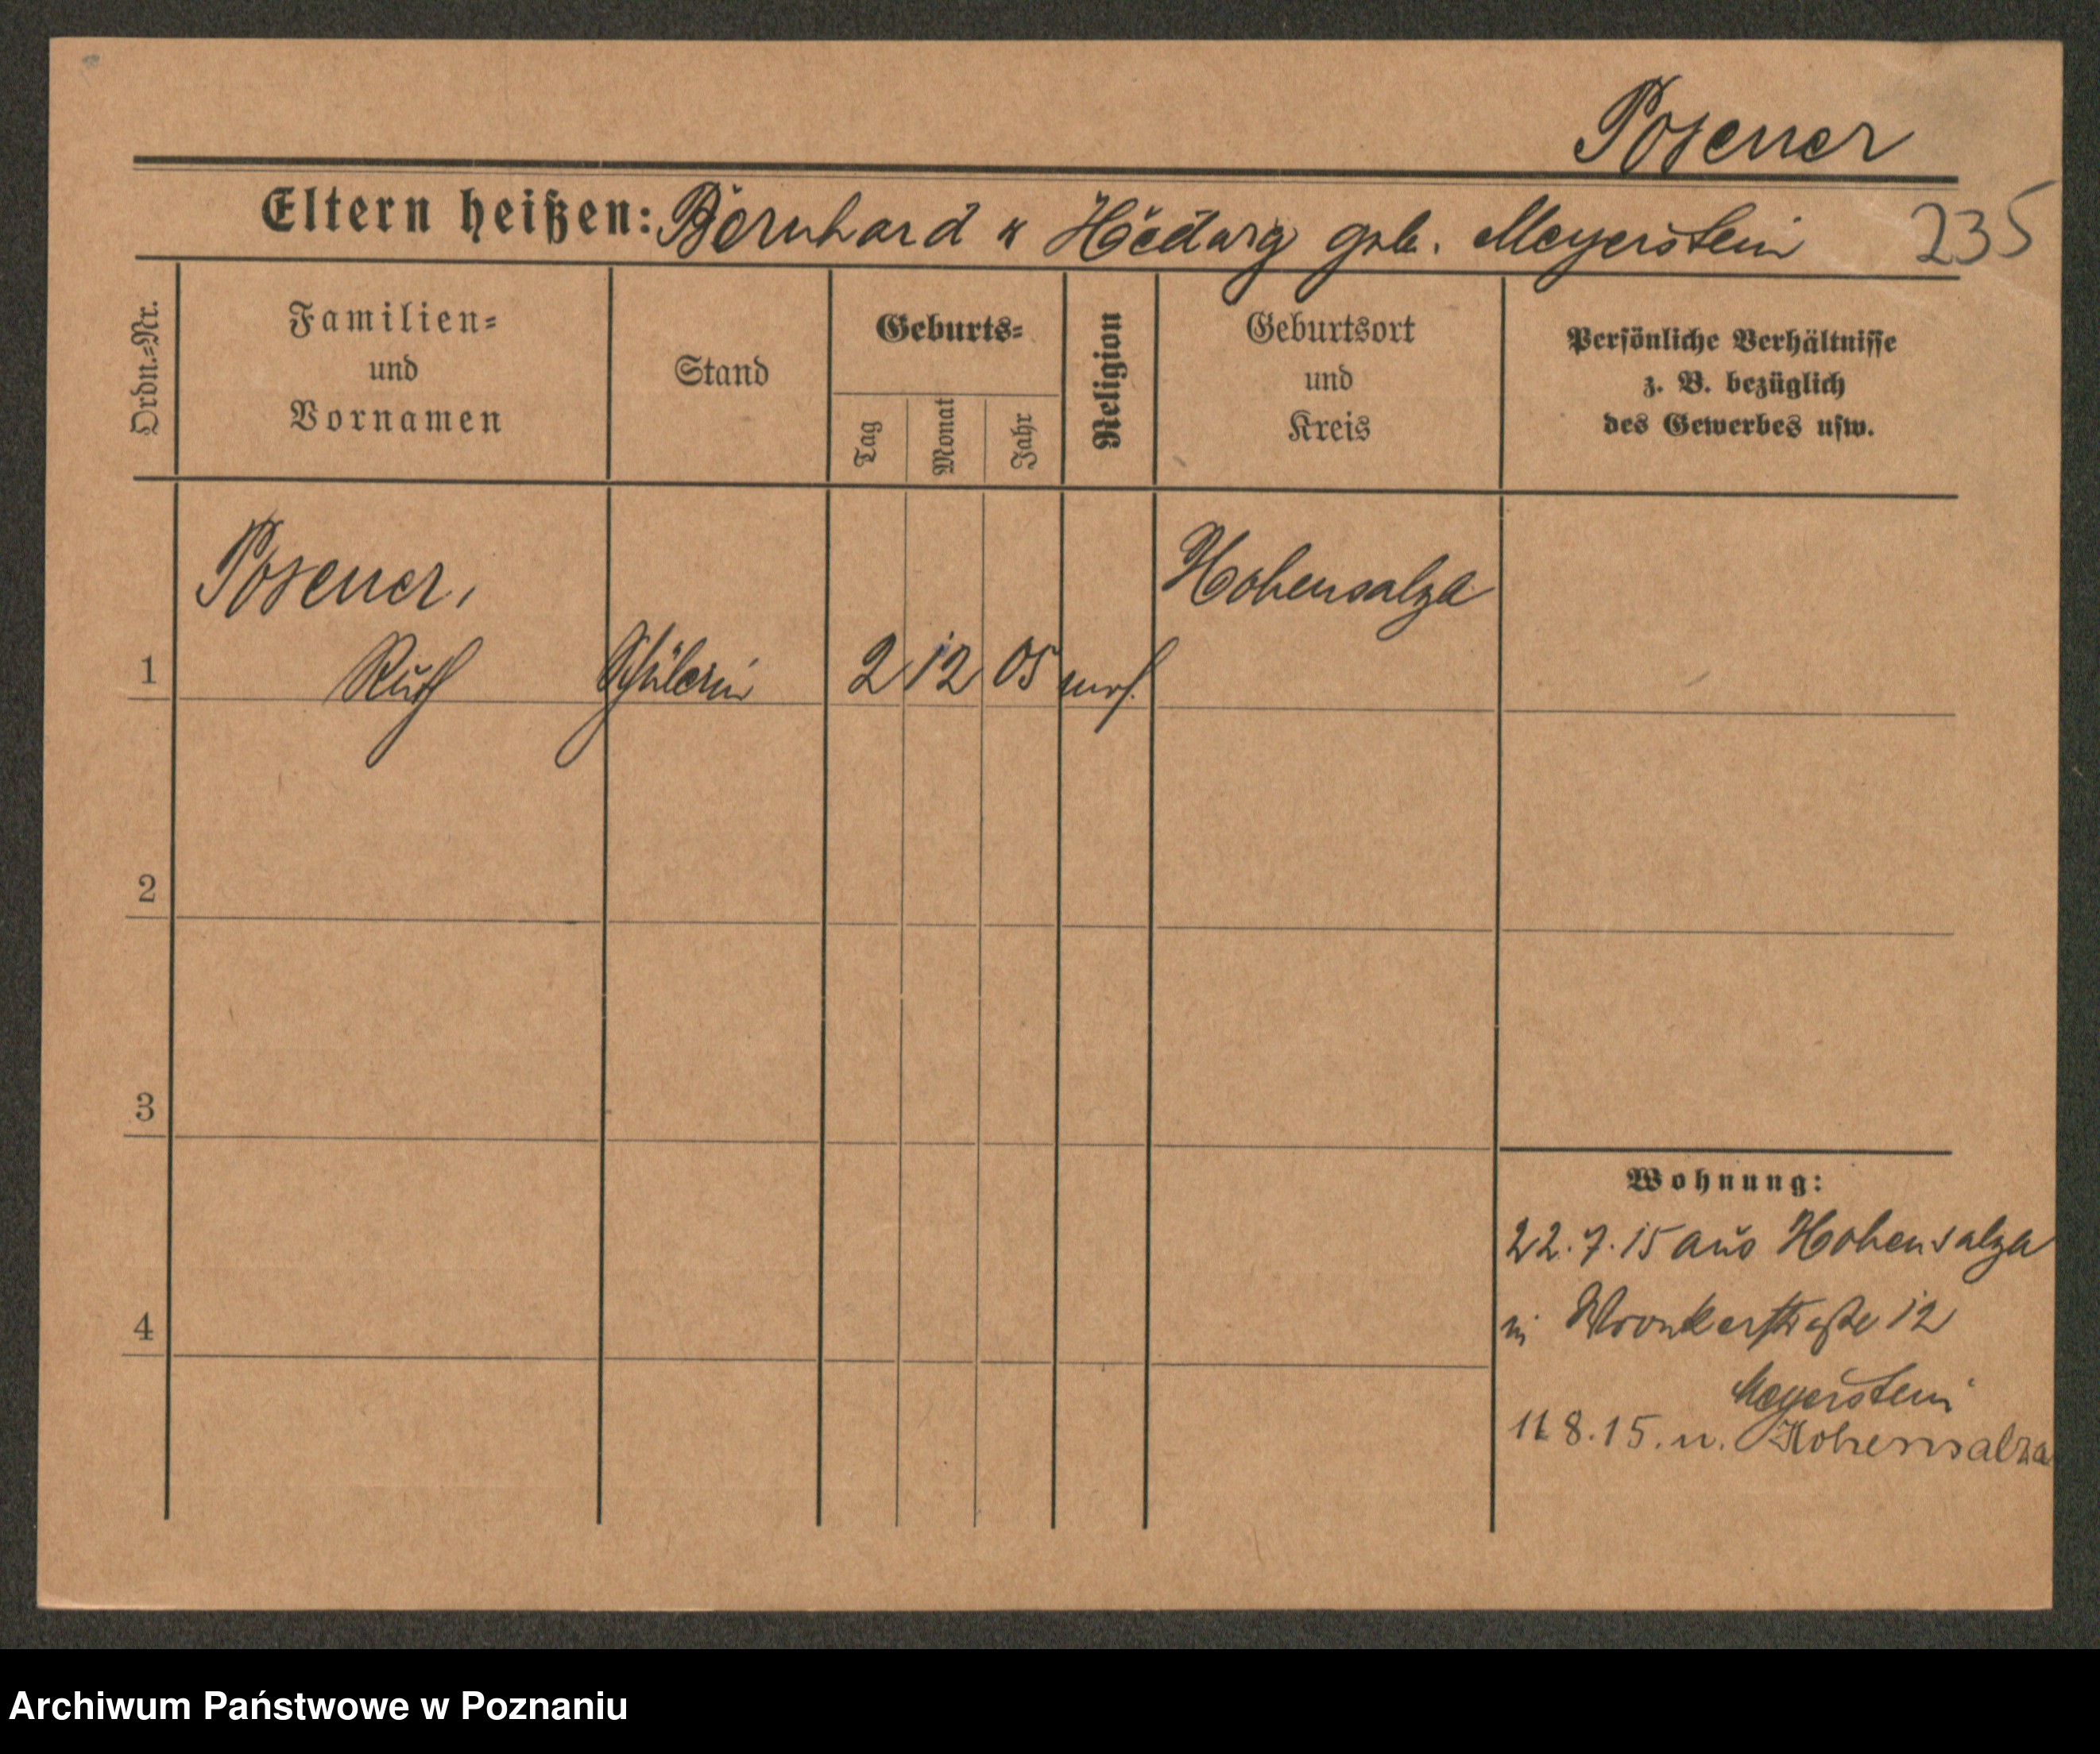 Posener
Eltern heißen: Bernhard u Hedwig geb. Meyerstein 235
Ordn.-Nr.
Familien- und Vornamen
Stand
Geburts-
Tag
Monat
Jahr
Religion
Geburtsort und Kreis
Persönliche Verhältnisse
z. B. bezüglich
des Gewerbes usw.
Posener, Hohensalza
1 Ruth Schülerin 2 12 05 mos.
2
3
4
Wohnung:
22.7.15 aus Hohensalza
in Wronkerstraße 12
Meyerstein
11.8.15. n. Hohensalza
Archiwum Państwowe w Poznaniu